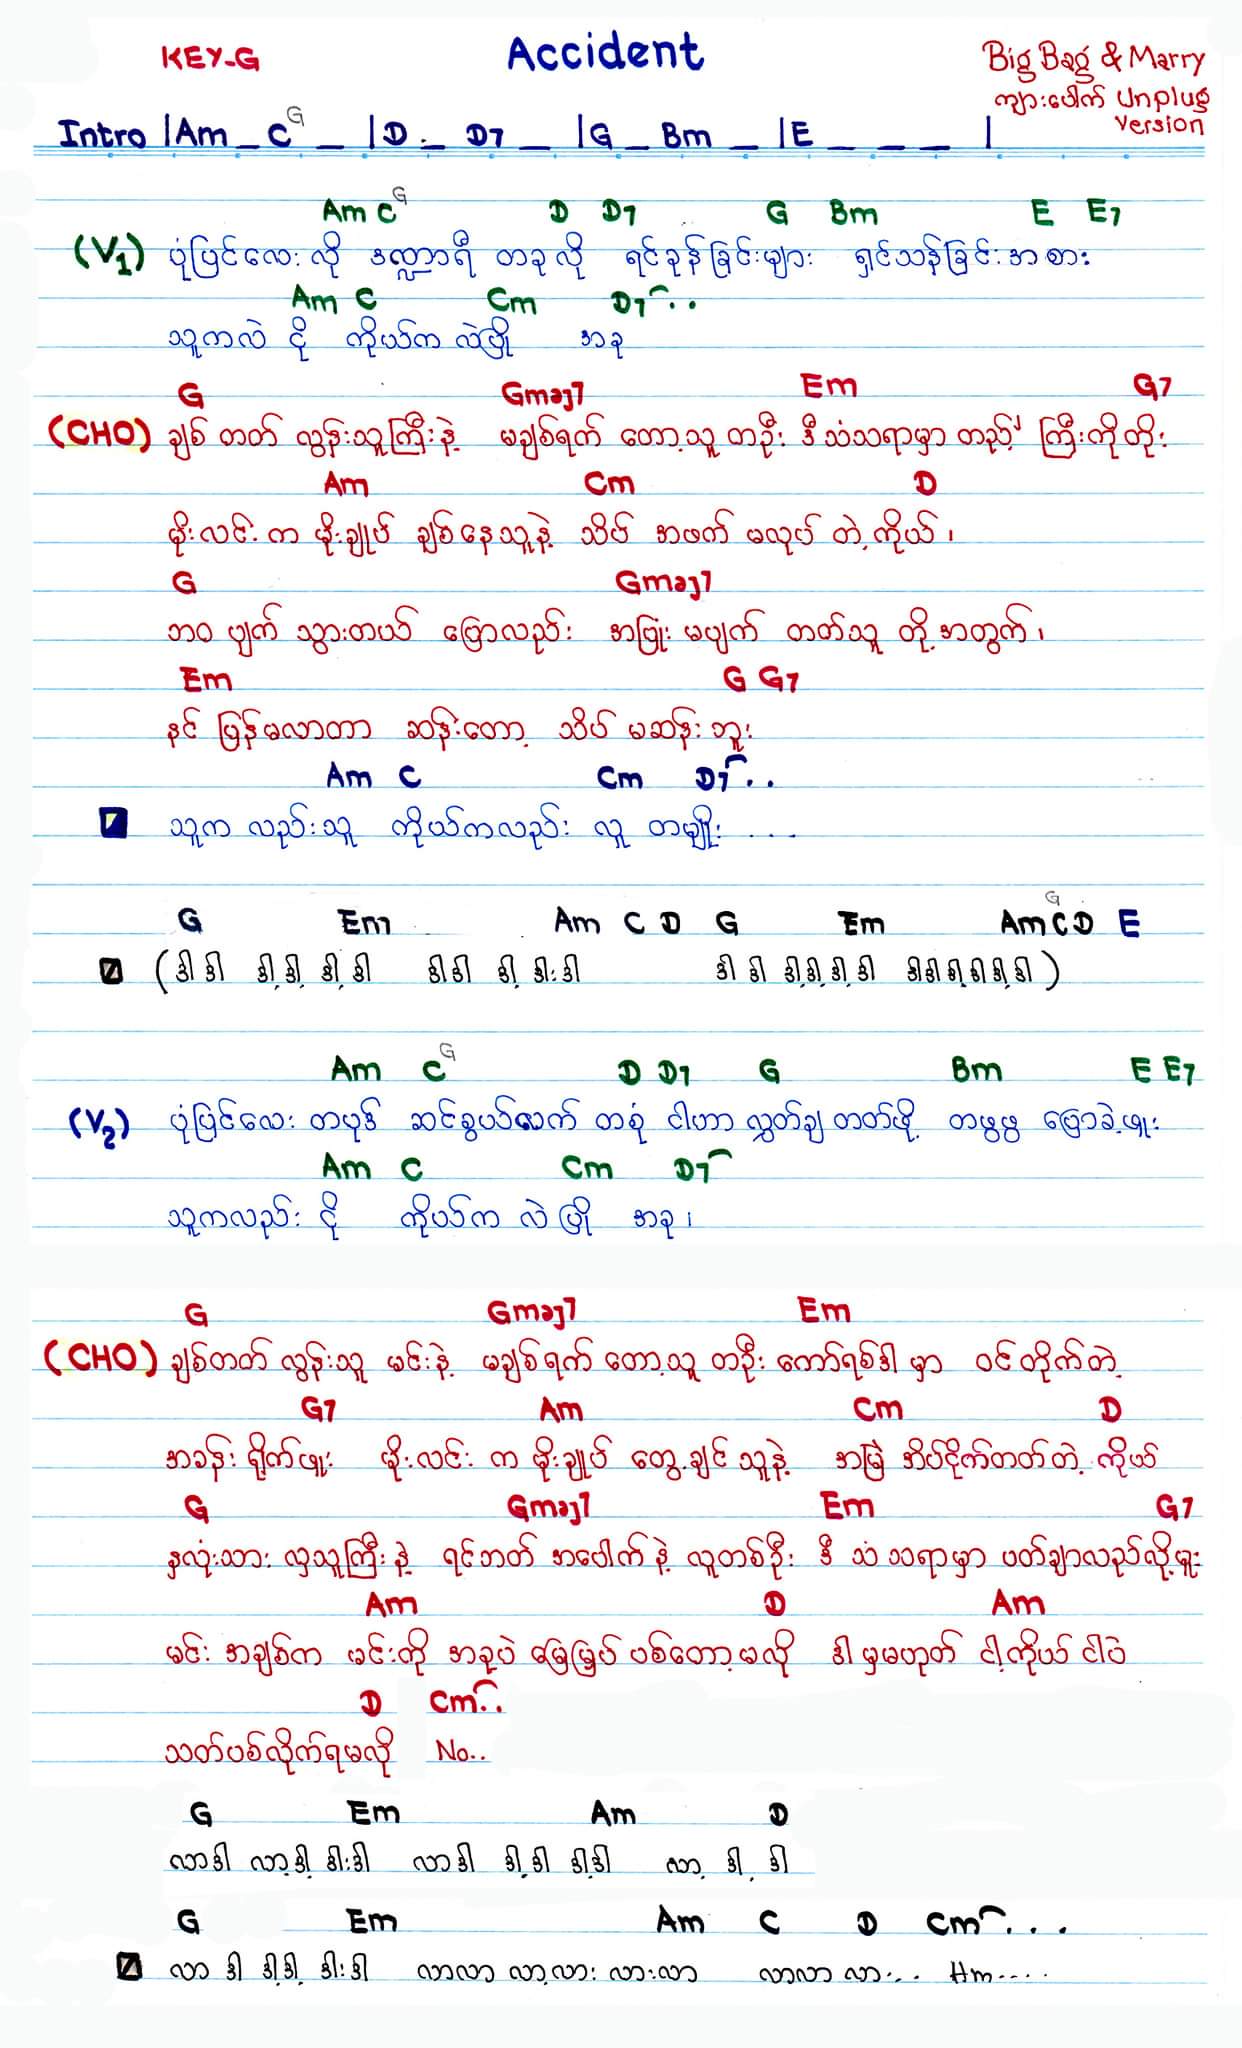 KEY-G Accident Big Bag & Marry
ကျားပေါက် Unplug
Version
Intro |Am _ C G _ |D _ D7 _ |G _ Bm _ |E _ _ _ |
Am C G D D7 G Bm E E7
(V1) ပုံပြင်လေးလို ဒဏ္ဍာရီ တခုလို ရင်ခုန်ခြင်းများ ရှင်သန်ခြင်းအစား
Am C Cm D7 ..
သူကလဲ ငို ကိုယ်က လဲပြို အခု
G Gmaj7 Em G7
(CHO) ချစ် တတ် လွန်းသူကြီးနဲ့ မချစ်ရက် တော့သူ တဦး ဒီသံသရာမှာ တည့်် ကြီးကိုတိုး
Am Cm D
မိုးလင်း က မိုးချုပ် ချစ်နေသူနဲ့ သိပ် အဖက် မလုပ် တဲ့ကိုယ်၊
G Gmaj7
ဘဝ ပျက် သွားတယ် ပြောလည်း အပြုံး မပျက် တတ်သူ တို့အတွက်၊
Em G G7
နင် ပြန်မလာတာ ဆန်းတော့ သိပ် မဆန်းဘူး
Am C Cm D7 ..
သူက လည်းသူ ကိုယ်ကလည်း လူ တမျိုး ...
G Em Am C D G Em Am G C D E
(ဒါဒါ ဒါ့ဒါ့ ဒါ့ဒါ ဒါဒါ ဒါ့ ဒါးဒါ ဒါ ဒါ ဒါ့ဒါ့ဒါ့ဒါ ဒါဒါဒါ့ဒါဒါ့ဒါ)
Am C G D D7 G Bm E E7
(V2) ပုံပြင်လေး တပုဒ် ဆင်စွယ်လက် တစုံ ငါဟာ လွှတ်ချ တတ်ဖို့ တဖွဖွ ပြောခဲ့ဖူး
Am C Cm D7
သူကလည်း ငို ကိုယ်က လဲ ပြို အခု၊
G Gmaj7 Em
(CHO) ချစ်တတ် လွန်းသူ မင်းနဲ့ မချစ်ရက် တော့သူ တဦး ကော်ရစ်ဒါ မှာ ဝင်တိုက်တဲ့
G7 Am Cm D
အခန်း ရိုက်ဖူး မိုးလင်း က မိုးချုပ် တွေ့ချင်သူနဲ့ အမြဲ အိပ်ငိုက်တတ်တဲ့ ကိုယ်
G Gmaj7 Em G7
နှလုံးသား လှသူကြီးနဲ့ ရင်ဘတ် အပေါက်နဲ့ လူတစ်ဦး ဒီ သံသရာမှာ ပတ်ချာလည်လို့မူး
Am D Am
မင်း အချစ်က မင်းကို အခုပဲ မြေမြှုပ် ပစ်တော့မလို ဒါမှမဟုတ် ငါ့ကိုယ် ငါပဲ
D Cm ..
သတ်ပစ်လိုက်ရမလို No..
G Em Am D
လာဒါ လာ့ဒါ့ ဒါးဒါ လာဒါ ဒါ့ဒါ ဒါ့ဒါ လာ့ ဒါ့ ဒါ
G Em Am C D Cm ...
လာ ဒါ ဒါ့ဒါ့ ဒါးဒါ လာလာ လာ့လား လားလာ လာလာ လာ... Hm....